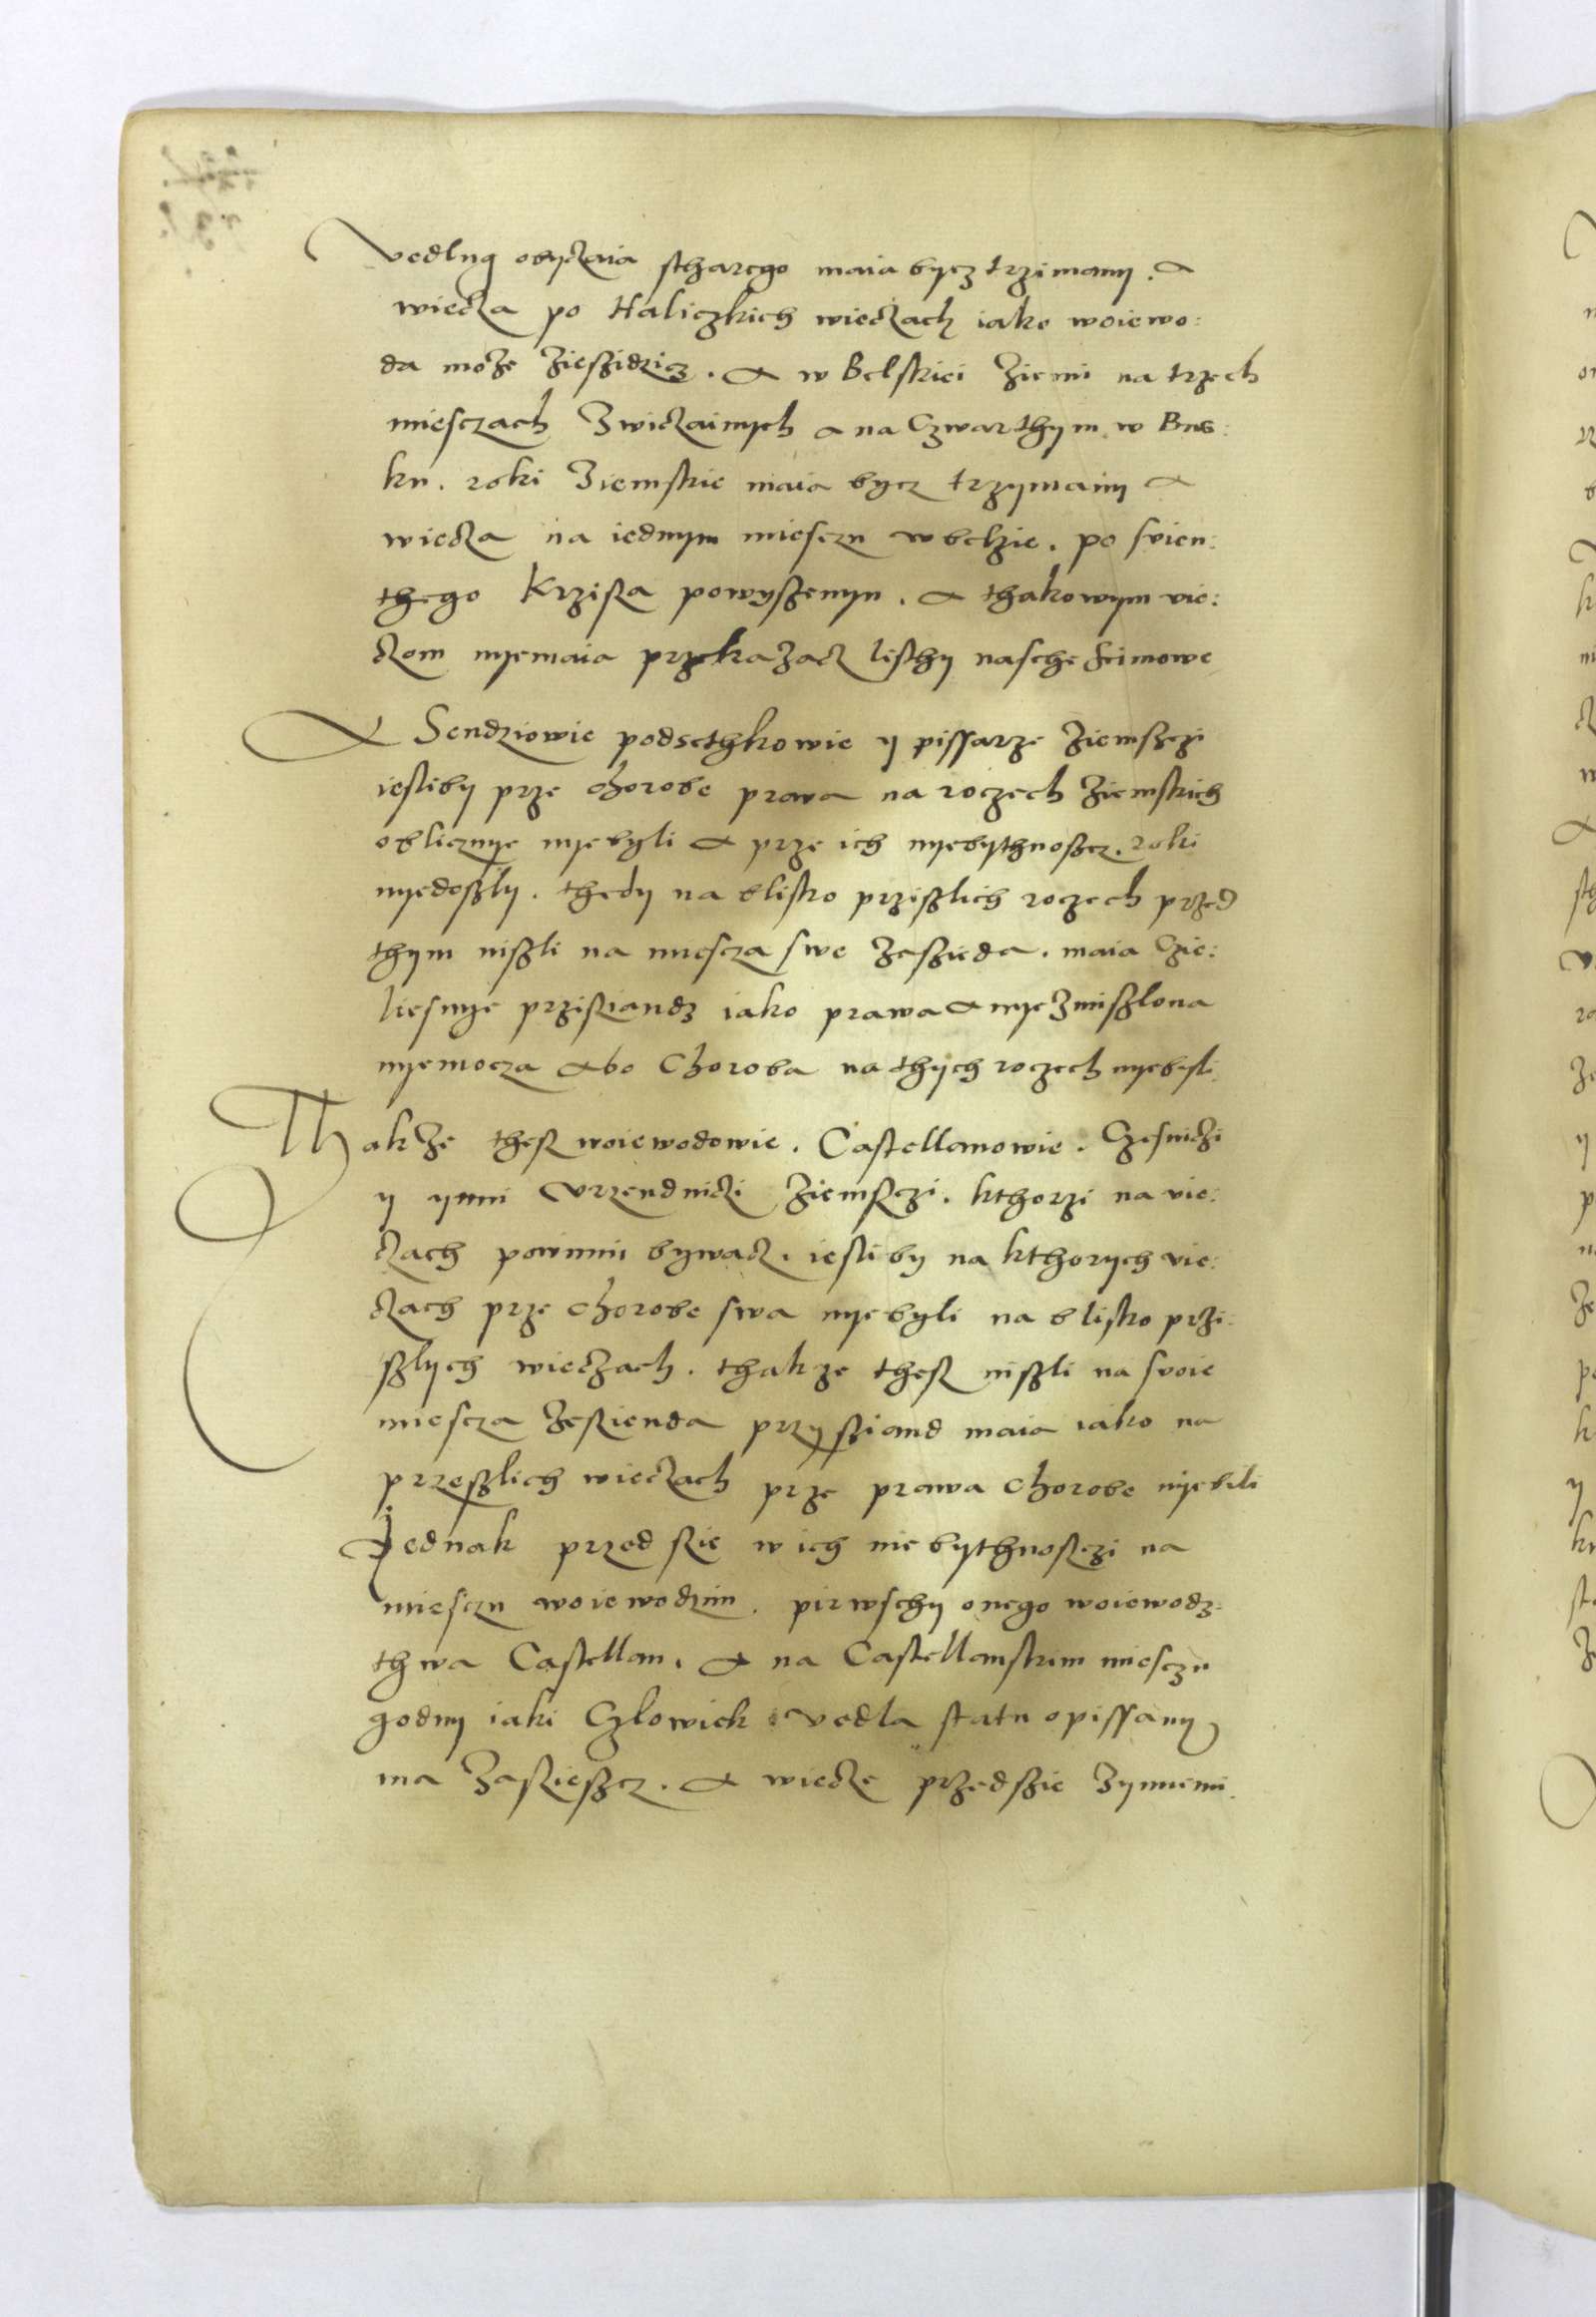 Vedlug obyczaia stharego maia bycz trzimany. A
wiecza po Haliczkich wieczach iako woiewo:
da może zieszidzicz. A w Belskiei ziemi na trzech
miesczach zwiczainych a na Czwarthym w Bus:
ku. roki ziemskie maia bycz trzymany a
wiecza na iednym miesczu w belzie. po svien:
thego Krzisza powyszenyu. A thakowym vie:
czom nyemaia przekazacz listhy nasche seimowe
A Sendziowie podsethkowie y pissarze ziemszczi
iesliby prze chorobe prawa na roczech ziemskich
oblicznye nyebyli a prze ich nyebythnoszcz. roki
nyedoszly. thedy na blisko przislich roczech przed
thym niszli na miescza swe zaszieda. maia Czie:
liesnye przisziandz iako prawa a nyezmiszlona
nyemocza abo Choroba na thych roczech nyebyli.
Thakze thesz woiewodowie. Castellanowie. Czesniczi
y ynni Vrzendniczi ziemsczi. kthorzi na vie:
czach powinni bywacz. iesliby na kthorych vie:
czach prze chorobe swa nyebyli na blisko przi:
szlych wieczach. thakze thesz niszli na svoie
miescza zeszienda przysziand maia iako na
przeszlich wieczach prze prawa chorobe nyebili
Jednak przed szie w ich niebythnosczi na
miesczu woiewodzim. pirwschy onego woiewodz:
thwa Castellan. A na Castellanskim miesczu
godny iaki Czlowiek vedla statu opissany
ma zasziescz. A wiecze przedszie zynimi.